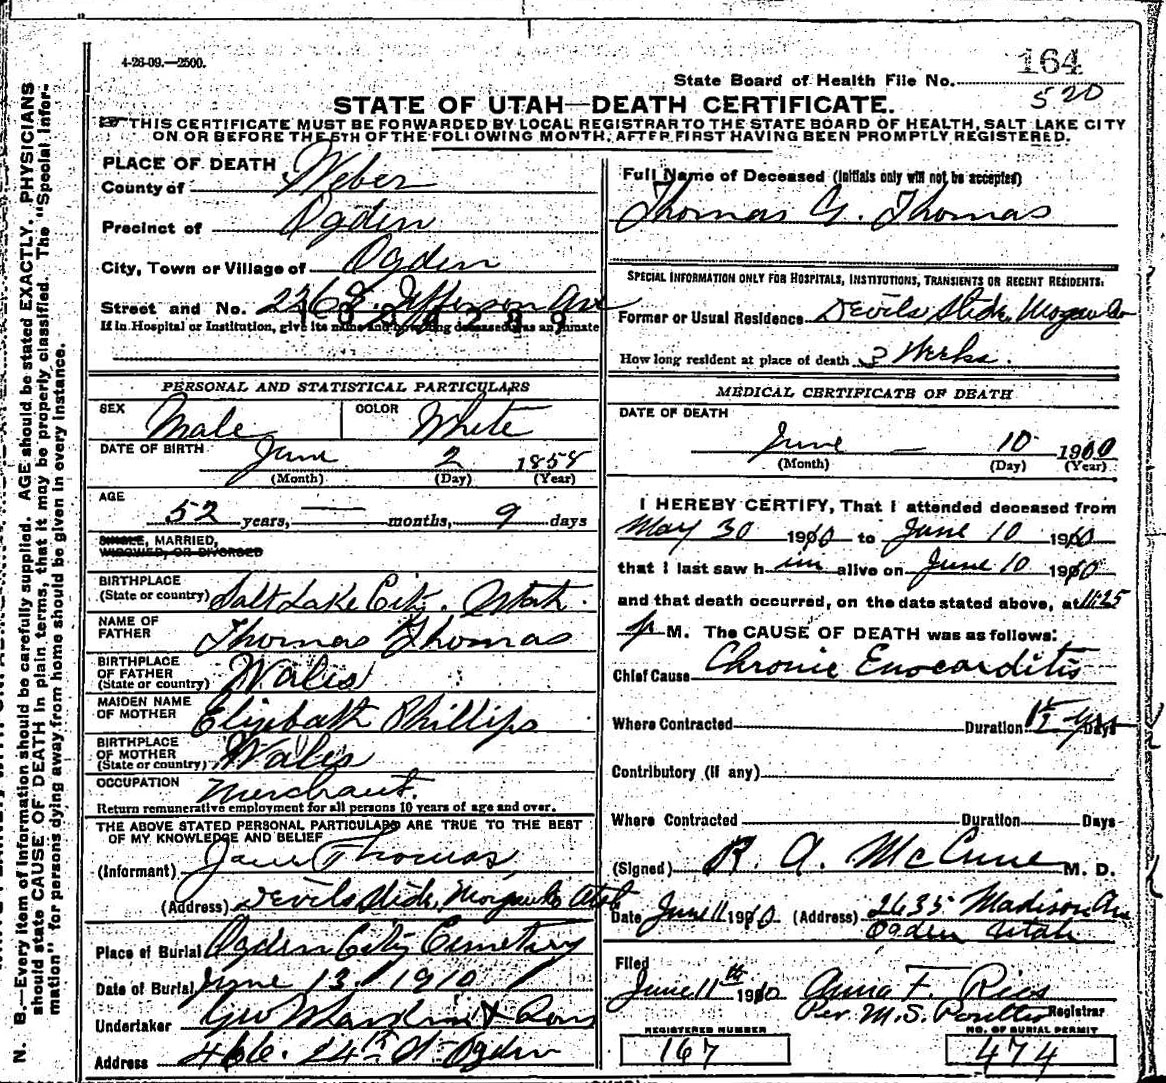 4-26-09.—2500.
164
State Board of Health File No.
520
STATE OF UTAH—DEATH CERTIFICATE.
THIS CERTIFICATE MUST BE FORWARDED BY LOCAL REGISTRAR TO THE STATE BOARD OF HEALTH, SALT LAKE CITY
ON OR BEFORE THE 5TH OF THE FOLLOWING MONTH, AFTER FIRST HAVING BEEN PROMPTLY REGISTERED.
PLACE OF DEATH
County of Weber
Precinct of Ogden
City, Town or Village of Ogden
Street and No. Jefferson Ave
If in Hospital or Institution, give its name and deceased was an inmate
PERSONAL AND STATISTICAL PARTICULARS
SEX Male COLOR White
DATE OF BIRTH June 2 1858
(Month) (Day) (Year)
AGE
52 years, — months, 9 days
SINGLE, MARRIED,
WIDOWED, OR DIVORCED
BIRTHPLACE
(State or country) Salt Lake City. Utah.
NAME OF
FATHER Thomas Thomas
BIRTHPLACE
OF FATHER
(State or country) Wales
MAIDEN NAME
OF MOTHER Elizabeth Phillips
BIRTHPLACE
OF MOTHER
(State or country) Wales
OCCUPATION Merchant.
Return remunerative employment for all persons 10 years of age and over.
THE ABOVE STATED PERSONAL PARTICULARS ARE TRUE TO THE BEST
OF MY KNOWLEDGE AND BELIEF
(Informant) Jane Thomas
(Address) Devils Slide, Morgan Co Utah
Place of Burial Ogden City Cemetery
Date of Burial June 13 1910
Undertaker Geo & Sons
Address 24th St Ogden
Full Name of Deceased (Initials only will not be accepted)
Thomas G. Thomas
SPECIAL INFORMATION ONLY FOR HOSPITALS, INSTITUTIONS, TRANSIENTS OR RECENT RESIDENTS:
Former or Usual Residence Devils Slide, Morgan Co
How long resident at place of death 3 Weeks.
MEDICAL CERTIFICATE OF DEATH
DATE OF DEATH
June — 10 1910
(Month) (Day) (Year)
I HEREBY CERTIFY, That I attended deceased from
May 30 1910 to June 10 1910
that I last saw him alive on June 10 1910
and that death occurred, on the date stated above, at 11:25
p M. The CAUSE OF DEATH was as follows:
Chief Cause Chronic Enocarditis
Where Contracted Duration yrs Days
Contributory (if any)
Where Contracted Duration Days
(Signed) R. A. McCune M. D.
Date June 11 1910 (Address) 2635 Madison Av
Ogden Utah
Filed
June 11th 1910 Anna F. Rios
Per. M. S. Poulter Registrar
REGISTERED NUMBER
167
NO. OF BURIAL PERMIT
474
N. B.—Every item of information should be carefully supplied. AGE should be stated EXACTLY. PHYSICIANS
should state CAUSE OF DEATH in plain terms, that it may be properly classified. The "Special Infor-
mation" for persons dying away from home should be given in every instance.